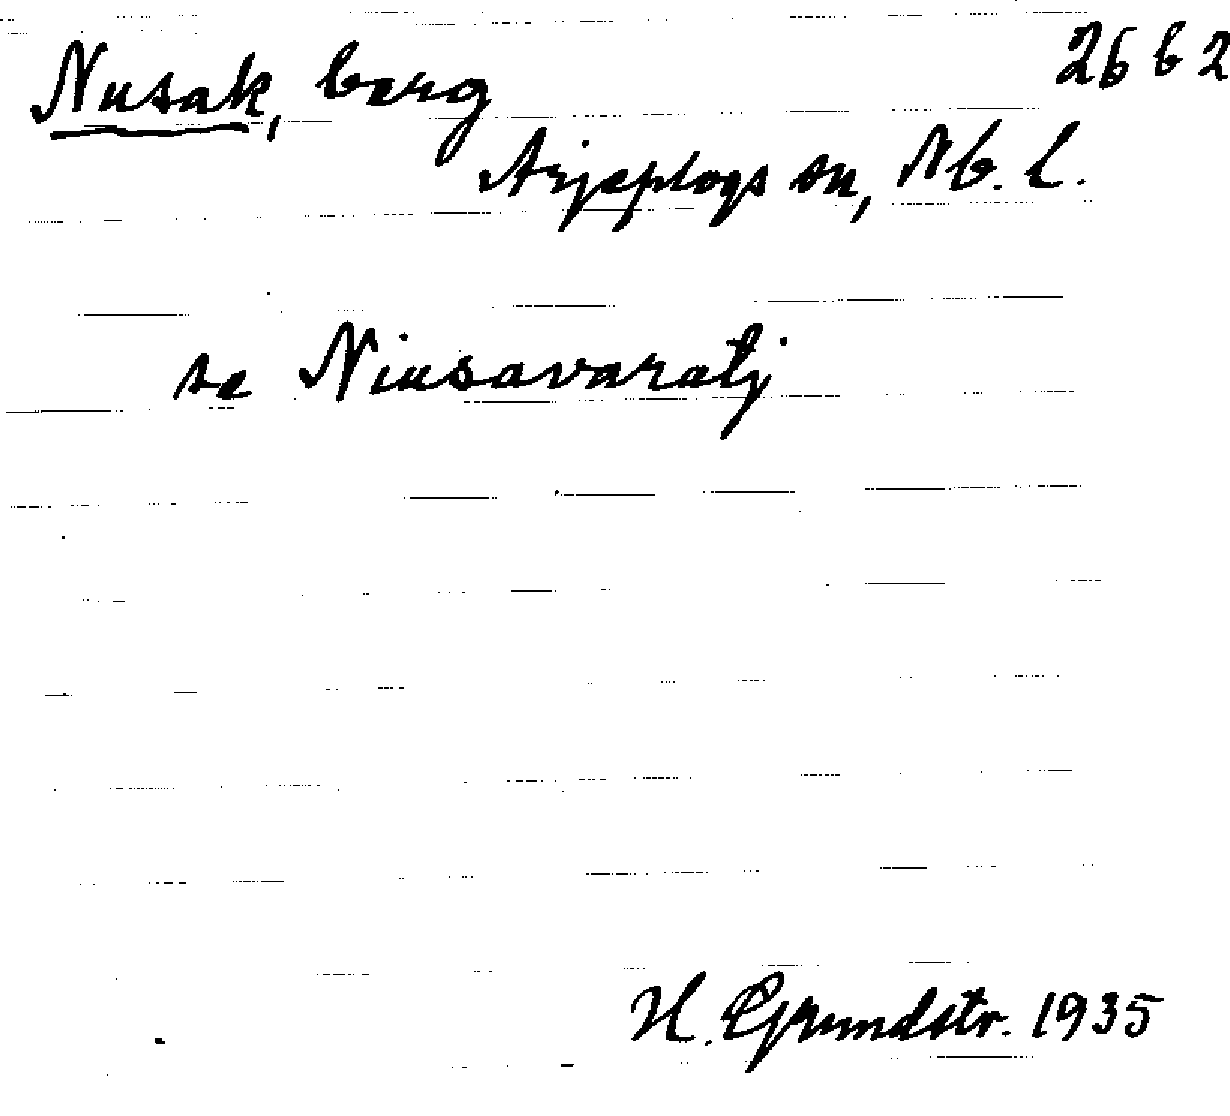 Nusak, berg 26 b 2
Arjeplogs sn, Nb. L.
se Niusavaratj
H. Grundstr. 1935